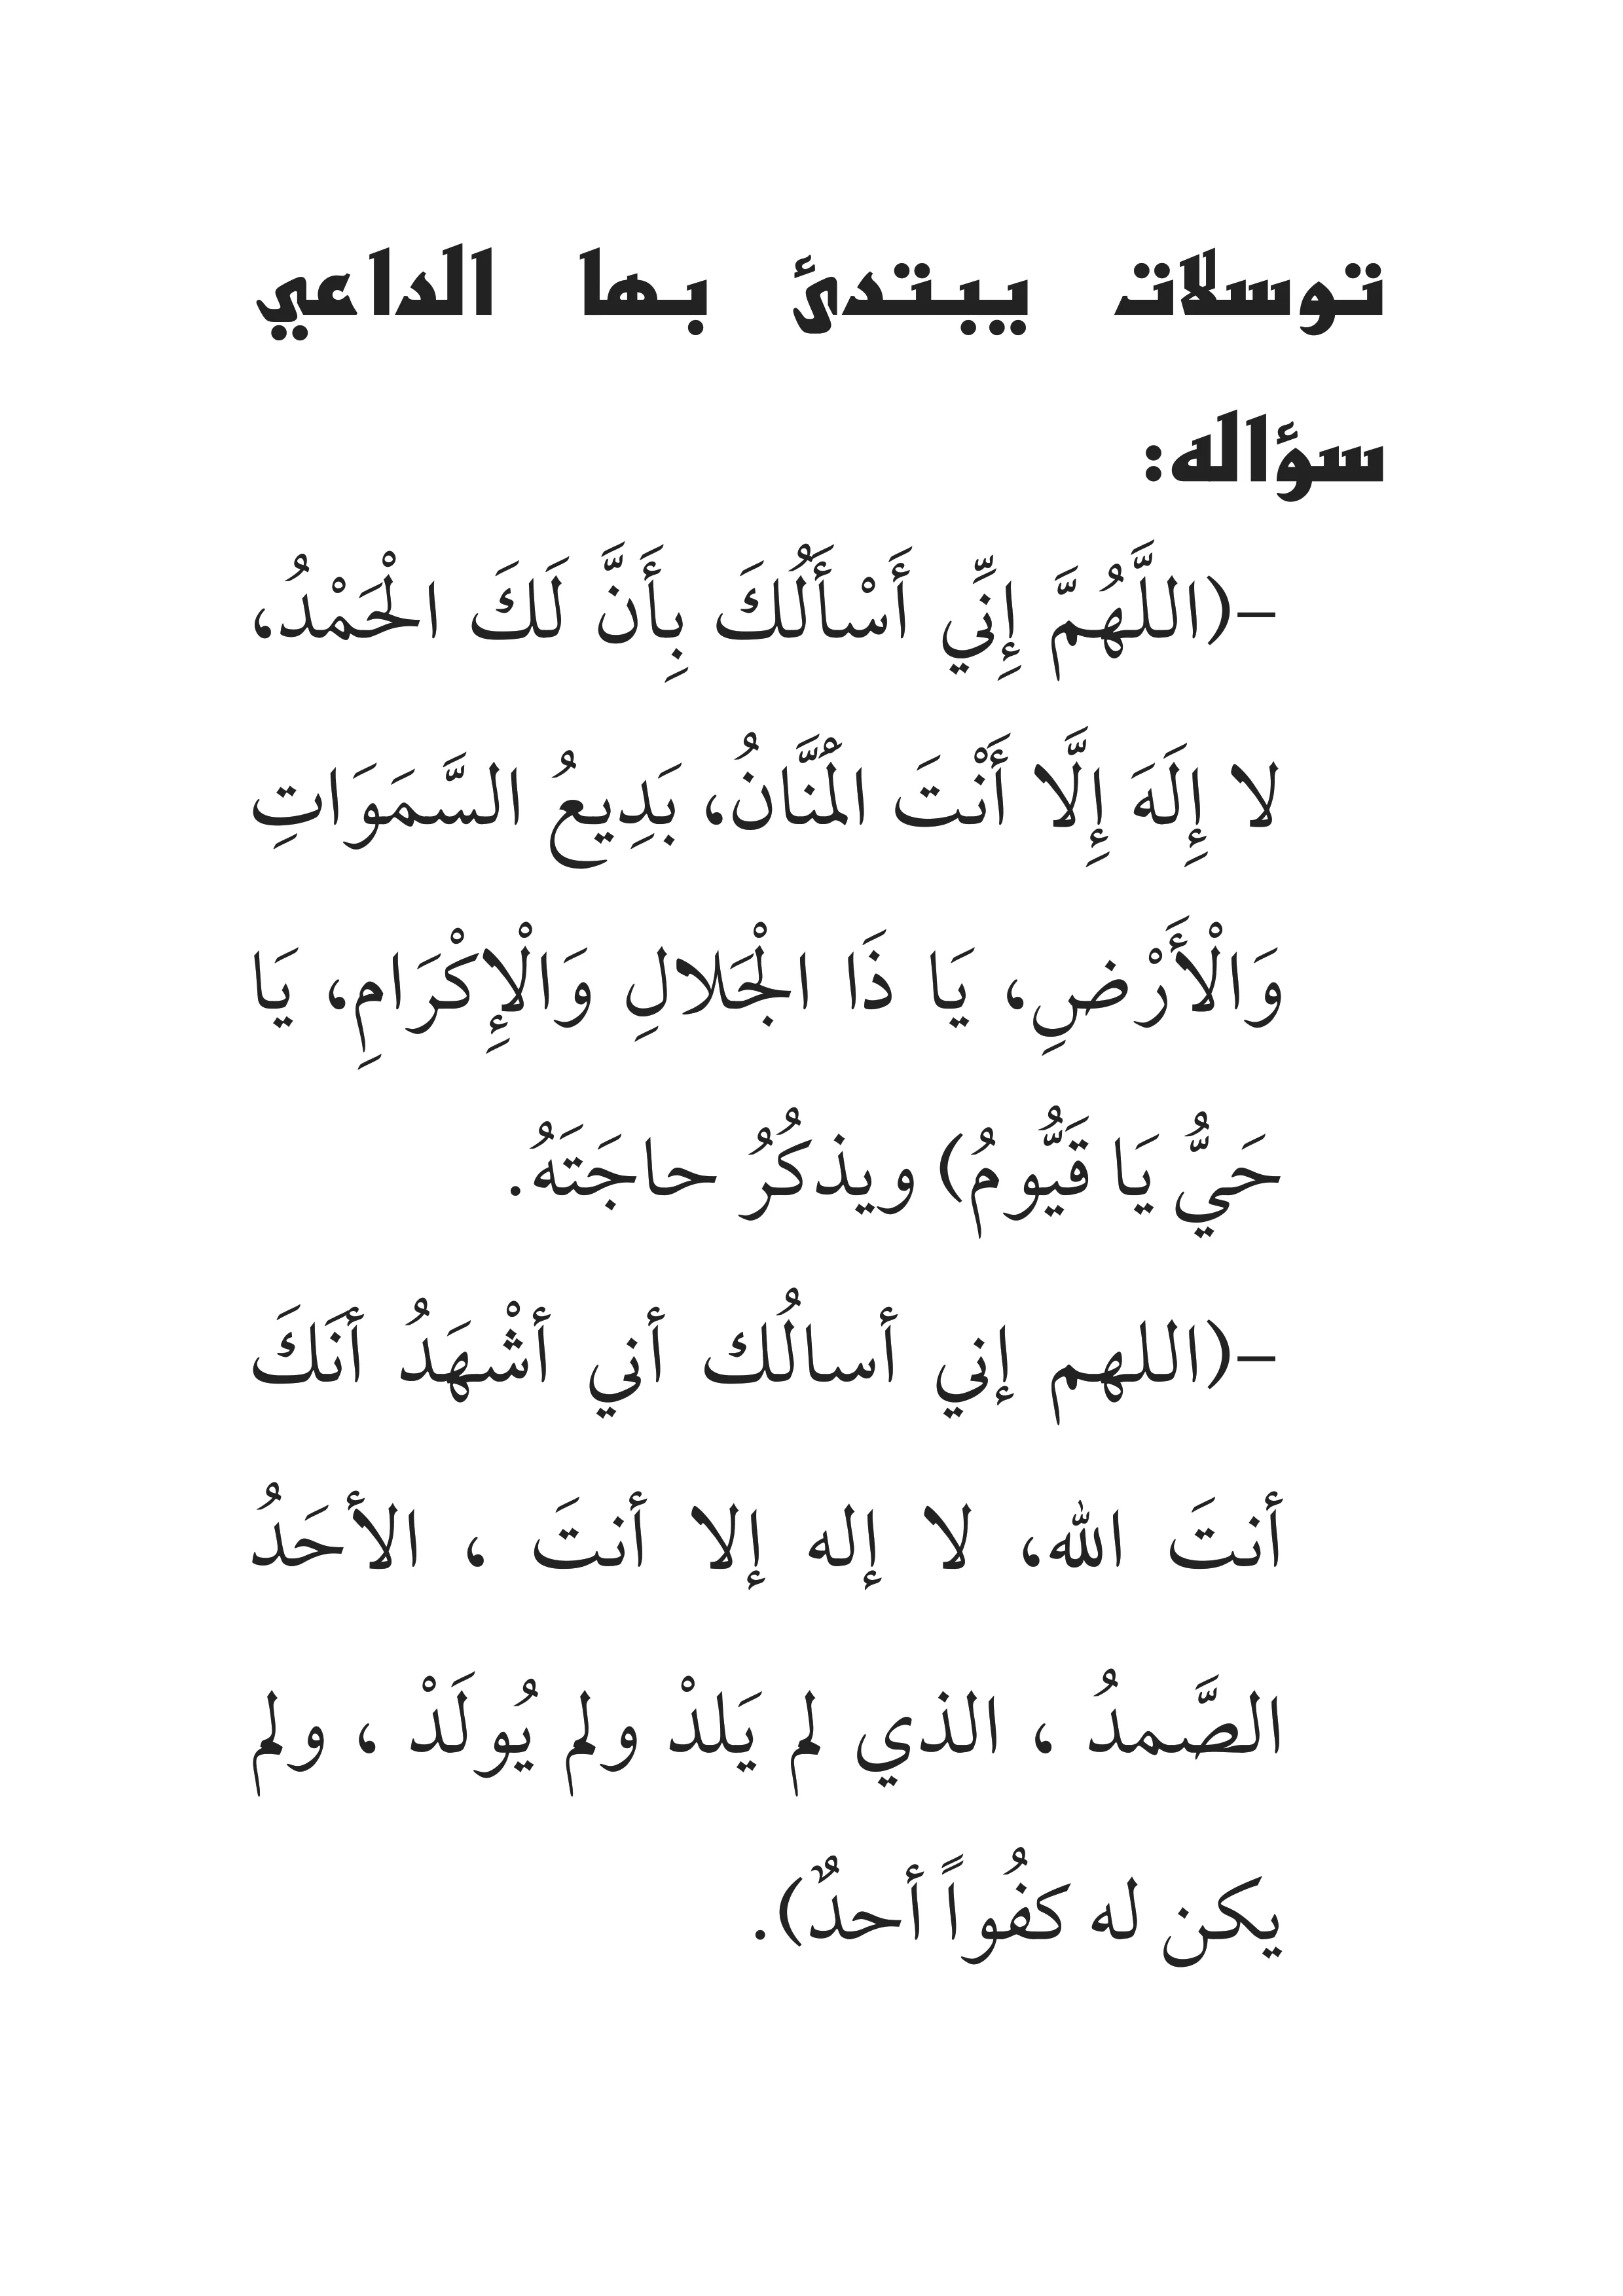 توسلات يبتدئ بها الداعي
سؤاله:
–(اللَّهُمَّ إِنِّي أَسْأَلُكَ بِأَنَّ لَكَ الْحَمْدُ،
لا إِلَهَ إِلَّا أَنْتَ الْمُنَّانُ، بَدِيعُ السَّمَوَاتِ
وَالْأَرْضِ، يَا ذَا الْجَلالِ وَالْإِكْرَامِ، يَا
حَيُّ يَا قَيُّومُ) ويذكُرُ حاجَتَهُ.
–(اللهم إني أسالُك أني أشْهَدُ أنَكَ
أنتَ الله، لا إله إلا أنتَ ، الأحَدُ
الصَّمدُ ، الذي لم يَلدْ ولم يُولَدْ ، ولم
يكن له كفُواً أحدٌ).